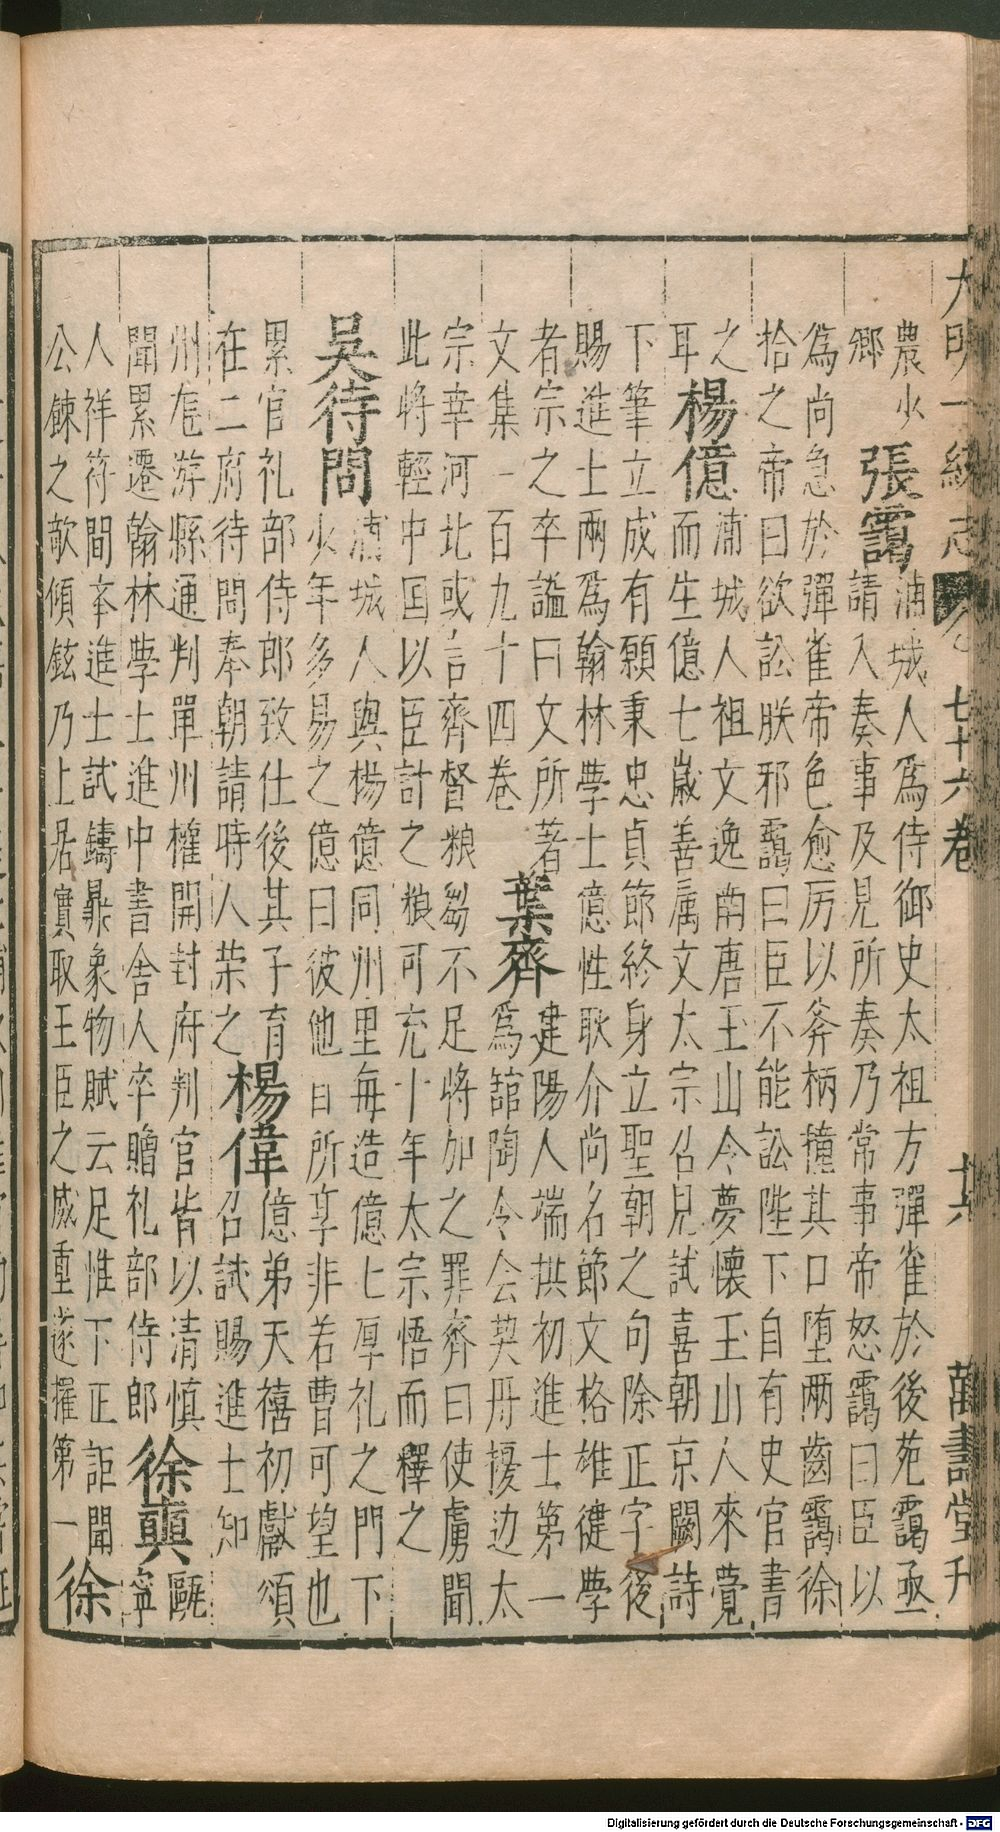 大明一統志 卷 七十六卷 十六 萬壽堂刋
農少
鄉
張靄
浦城人爲侍御史太祖方彈雀於後苑靄亟
請入奏事及見所奏乃常事帝怒靄曰臣以
爲尚急於彈雀帝色愈厉以斧柄撞其口堕两齒靄徐
拾之帝曰欲訟朕邪靄曰臣不能訟陛下自有史官書
之
耳
楊億
浦城人祖文逸南唐玉山令夢懷玉山人來覺
而生億七歲善属文太宗召見試喜朝京闕詩
下筆立成有願秉忠貞節終身立聖朝之句除正字後
賜進士兩爲翰林學士億性耿介尚名節文格雄健學
者宗之卒謚曰文所著
文集一百九十四卷
葉齊
建陽人端拱初進士第一
爲舘陶令会契丹擾边太
宗幸河北或言齊督粮芻不足將加之罪齊曰使虜聞
此將輕中国以臣計之粮可充十年太宗悟而釋之
吴待問
浦城人與楊億同州里每造億七厚礼之門下
少年多易之億曰彼他日所享非若曹可望也
累官礼部侍郎致仕後其子育
在二府待問奉朝請時人荣之
楊偉
億弟天禧初獻頌
召試賜進士知
州龙游縣通判單州權開封府判官皆以清慎
聞累遷翰林學士進中書舍人卒贈礼部侍郎
徐奭
甌
寧
人祥符間夲進士試鑄鼎象物賦云足惟下正詎聞
公餗之欹傾鉉乃上居實取王臣之威重遂擢第一
徐
Digitalisierung gefördert durch die Deutsche Forschungsgemeinschaft - DFG